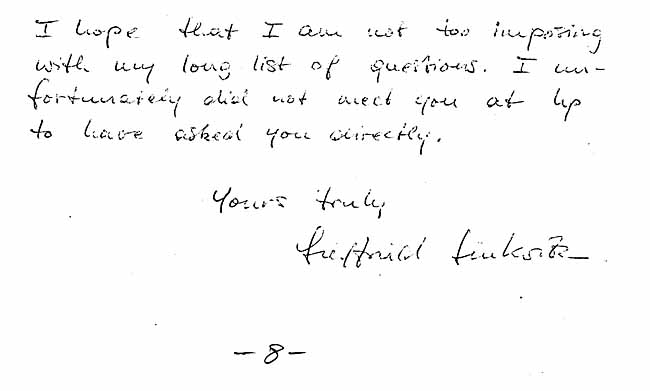 I hope that I am not too imposing
with my long list of questions. I un-
fortunately did not meet you at Up
to have asked you directly.
Yours truly,
-8-